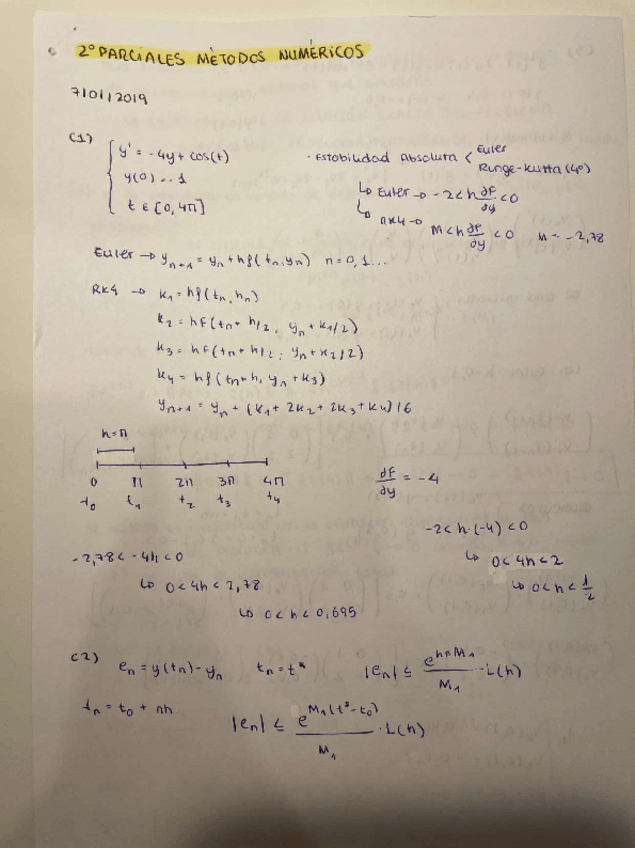 2º PARCIALES MÉTODOS NUMÉRICOS
7/01/2019
C1)
y' = -4y + cos(t)
y(0) = 1
t ∈ [0, 4π]
· Estabilidad Absoluta < Euler
Runge-Kutta (4º)
↳ Euler → -2 < h ∂F/∂y < 0
↳ RK4 → M < h ∂F/∂y < 0 M = -2,78
Euler → yₙ₊₁ = yₙ + hf(tₙ, yₙ) n = 0, 1...
RK4 → k₁ = hf(tₙ, hₙ)
k₂ = hf(tₙ + h/2, yₙ + k₁/2)
k₃ = hf(tₙ + h/2, yₙ + k₂/2)
k₄ = hf(tₙ + h, yₙ + k₃)
yₙ₊₁ = yₙ + (k₁ + 2k₂ + 2k₃ + k₄)/6
h = π
0 π 2π 3π 4π
t₀ t₁ t₂ t₃ t₄
∂F/∂y = -4
-2 < h·(-4) < 0
↳ 0 < 4h < 2
↳ 0 < h < 1/2
-2,78 < -4h < 0
↳ 0 < 4h < 2,78
↳ 0 < h < 0,695
C2)
eₙ = y(tₙ) - yₙ tₙ = t* |eₙ| ≤ e^(hnM₁)/M₁ · L(h)
tₙ = t₀ + nh
|eₙ| ≤ e^(M₁(t*-t₀))/M₁ · L(h)